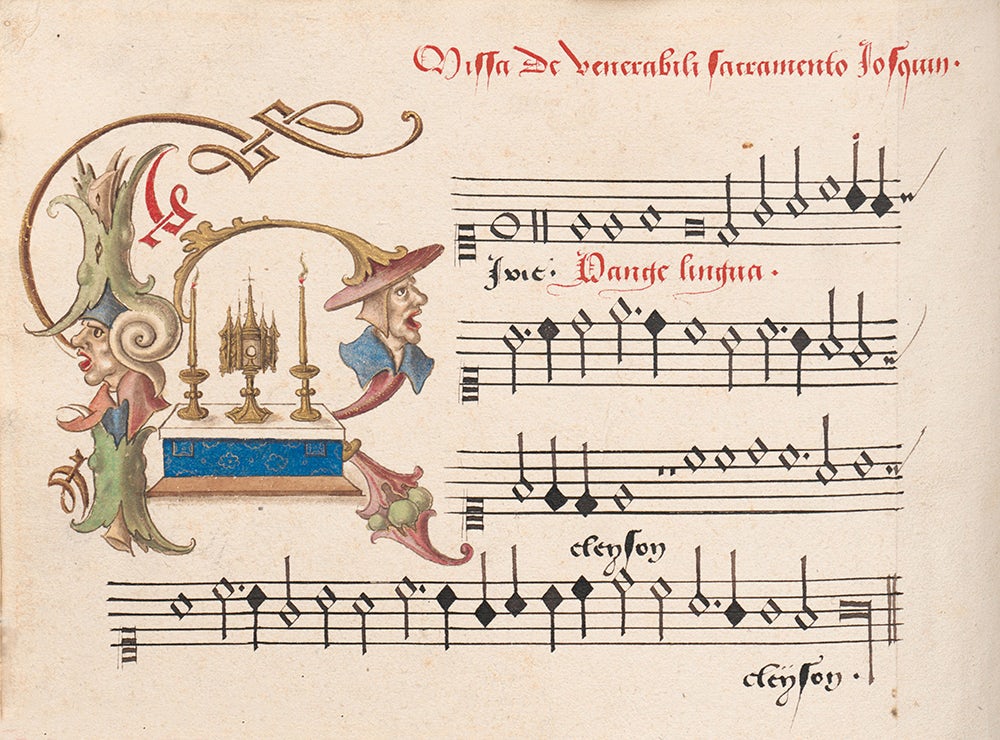 Missa De venerabili sacramento Josquin.
Kirie. Pange lingua.
eleyson
eleÿson.